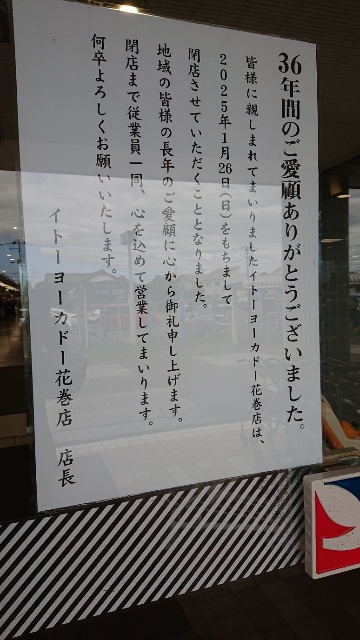 36年間のご愛顧ありがとうございました。
皆様に親しまれてまいりましたイトーヨーカドー花巻店は、
2025年1月26日(日)をもちまして
閉店させていただくこととなりました。
地域の皆様の長年のご愛顧に心から御礼申し上げます。
閉店まで従業員一同、心を込めて営業してまいります。
何卒よろしくお願いいたします。
イトーヨーカドー花巻店　店長